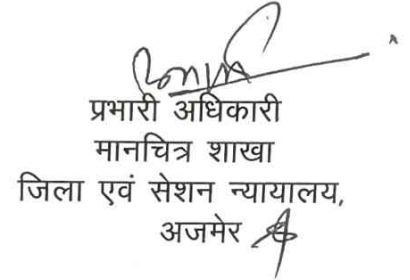 प्रभारी अधिकारी
मानचित्र शाखा
जिला एवं सेशन न्यायालय,
अजमेर